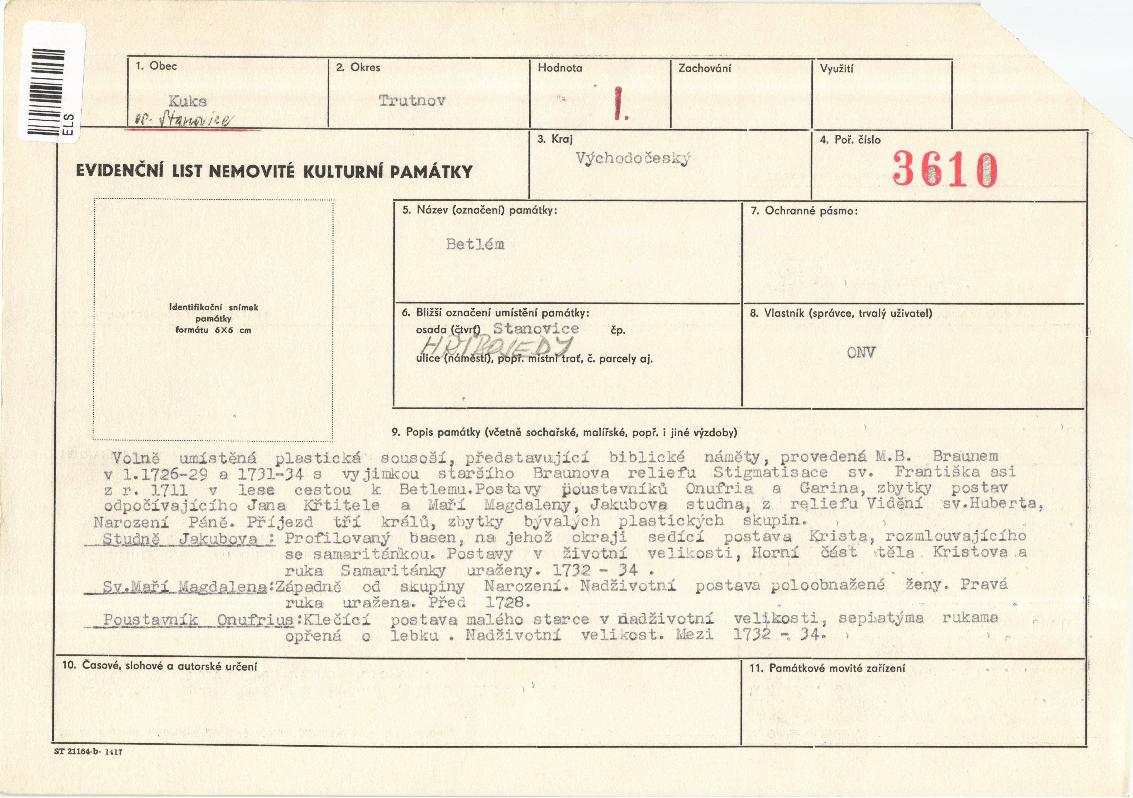 ELS
1. Obec
2. Okres
Hodnota
Zachování
Využití
Kuks
Trutnov
1.
Stanovice
3. Kraj
4. Poř. číslo
Východočeský
3610
EVIDENČNÍ LIST NEMOVITÉ KULTURNÍ PAMÁTKY
5. Název (označení) památky:
7. Ochranné pásmo:
Betlém
Identifikační snímek
památky
formátu 6×6 cm
6. Bližší označení umístění památky:
8. Vlastník (správce, trvalý uživatel)
osada (čtvrť) Stanovice čp.
HŘIBOJEDY
ONV
ulice (náměstí), popř. místní trať, č. parcely aj.
9. Popis památky (včetně sochařské, malířské, popř. i jiné výzdoby)
Volně umístěná plastická sousoší, představující biblické náměty, provedená M.B. Braunem
v l.1726-29 a 1731-34 s vyjimkou staršího Braunova reliefu Stigmatisace sv. Františka asi
z r. 1711 v lese cestou k Betlemu.Postavy poustevníků Onufria a Garina, zbytky postav
odpočívajícího Jana Křtitele a Maří Magdaleny, Jakubova studna, z reliefu Vidění sv.Huberta,
Narození Páně. Příjezd tří králů, zbytky bývalých plastických skupin.
Studně Jakubova : Profilovaný basen, na jehož okraji sedící postava Krista, rozmlouvajícího
se samaritánkou. Postavy v životní velikosti, Horní část těla Kristova a
ruka Samaritánky uraženy. 1732 - 34 .
Sv.Maří Magdalena:Západně od skupiny Narození. Nadživotní postava poloobnažené ženy. Pravá
ruka uražena. Před 1728.
Poustavník Onufrius:Klečící postava malého starce v nadživotní velikosti, sepiatýma rukama
opřená o lebku . Nadživotní velikost. Mezi 1732 - 34.
10. Časové, slohové a autorské určení
11. Památkové movité zařízení
ST 21164-b- 1417